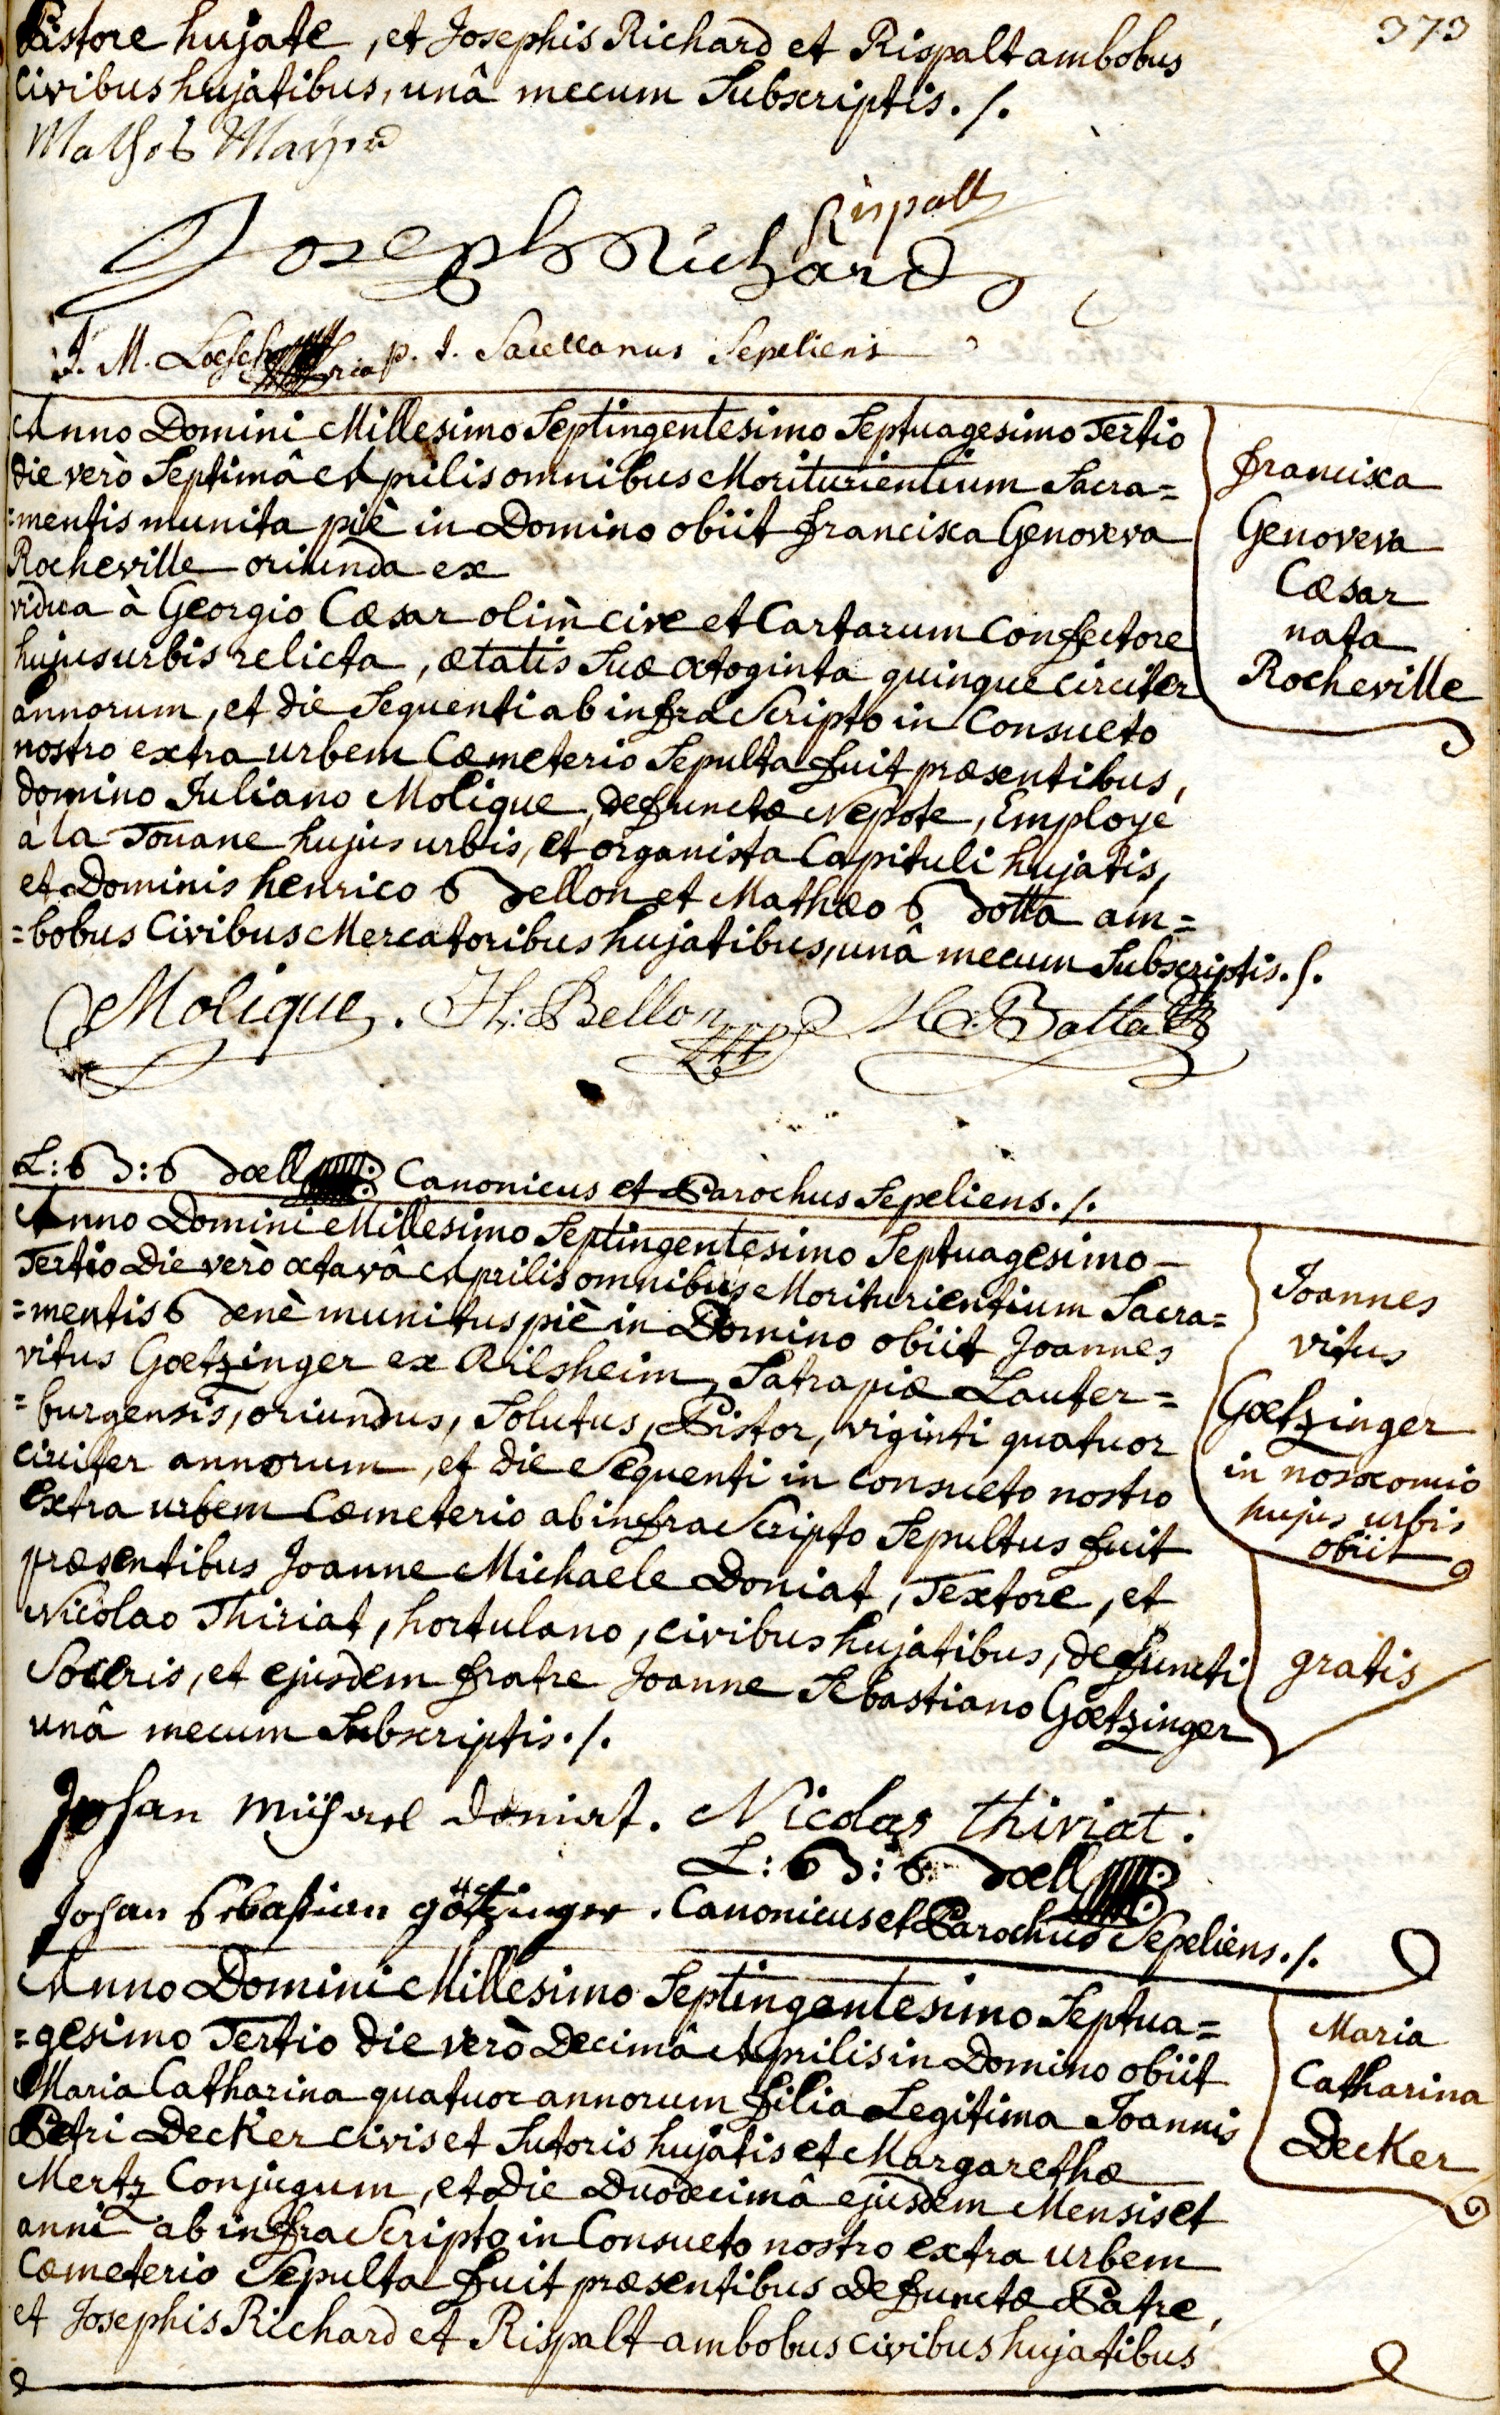 373
Pistore hujate, et Josephis Richard et Rispalt ambobus
Civibus hujatibus, unâ mecum Subscriptis./.
Mathes Mayer
Rispalt
Joseph Richard
J. M. p. t. Sacellanus Sepeliens
Anno Domini Millesimo Septingentesimo Septuagesimo Tertio
die verò Septimâ Aprilis omnibus Moriturientium Sacra=
=mentis munita piè in Domino obiit francisca Genoveva
Rocheville oriunda ex
vidua à Georgio Cæsar olim cive et Cartarum Confectore
hujus urbis relicta, ætatis Suæ octoginta quinque circiter
annorum, et die Sequenti ab infra Scripto in Consueto
nostro extra urbem Cæmeterio Sepulta fuit præsentibus,
domino Juliano Molique, defunctæ Nepote, Employe
à la Touane hujus urbis, et organista Capituli hujatis,
et Dominis henrico Bellon et Mathæo Botta am=
=bobus Civibus Mercatoribus hujatibus, unâ mecum Subscriptis./.
francisca
Genoveva
Cæsar
nata
Rocheville
Molique. H: Bellon M: Botta
L: B: Bœll Canonicus et Parochus Sepeliens./.
Anno Domini Millesimo Septingentesimo Septuagesimo
Tertio die verò octavâ Aprilis omnibus Moriturientium Sacra=
=mentis Benè munitus piè in Domino obiit Joannes
vitus Gœtzinger ex Rilsheim, Satrapiæ Lauter=
=burgensis, oriundus, Solutus, Pistor, viginti quatuor
circiter annorum, et die Sequenti in consueto nostro
extra urbem Cæmeterio ab infra Scripto Sepultus fuit
præsentibus Joanne Michaele Doniat, Textore, et
Nicolao Thiriat, hortulano, civibus hujatibus, defuncti
Soceris, et ejusdem fratre Joanne Sebastiano Gœtzinger
unâ mecum Subscriptis./.
Joannes
vitus
Gœtzinger
in nosocomio
hujus urbis
obiit
gratis
Johan michael doniat. Nicolas thiriat.
L: B: Bœll
Johan Sebastian götzinger. Canonicus et Parochus Sepeliens./.
Anno Domini Millesimo Septingentesimo Septua=
=gesimo Tertio die verò Decimâ Aprilis in Domino obiit
Maria Catharina quatuor annorum filia Legitima Joannis
Petri Decker civis et Sutoris hujatis et Margarethæ
Mertz Conjugum, et die Duodecimâ ejusdem Mensis et
anni ab infra Scripto in Consueto nostro extra urbem
Cæmeterio Sepulta fuit præsentibus defunctæ Patre,
et Josephis Richard et Rispalt ambobus civibus hujatibus
Maria
Catharina
Decker